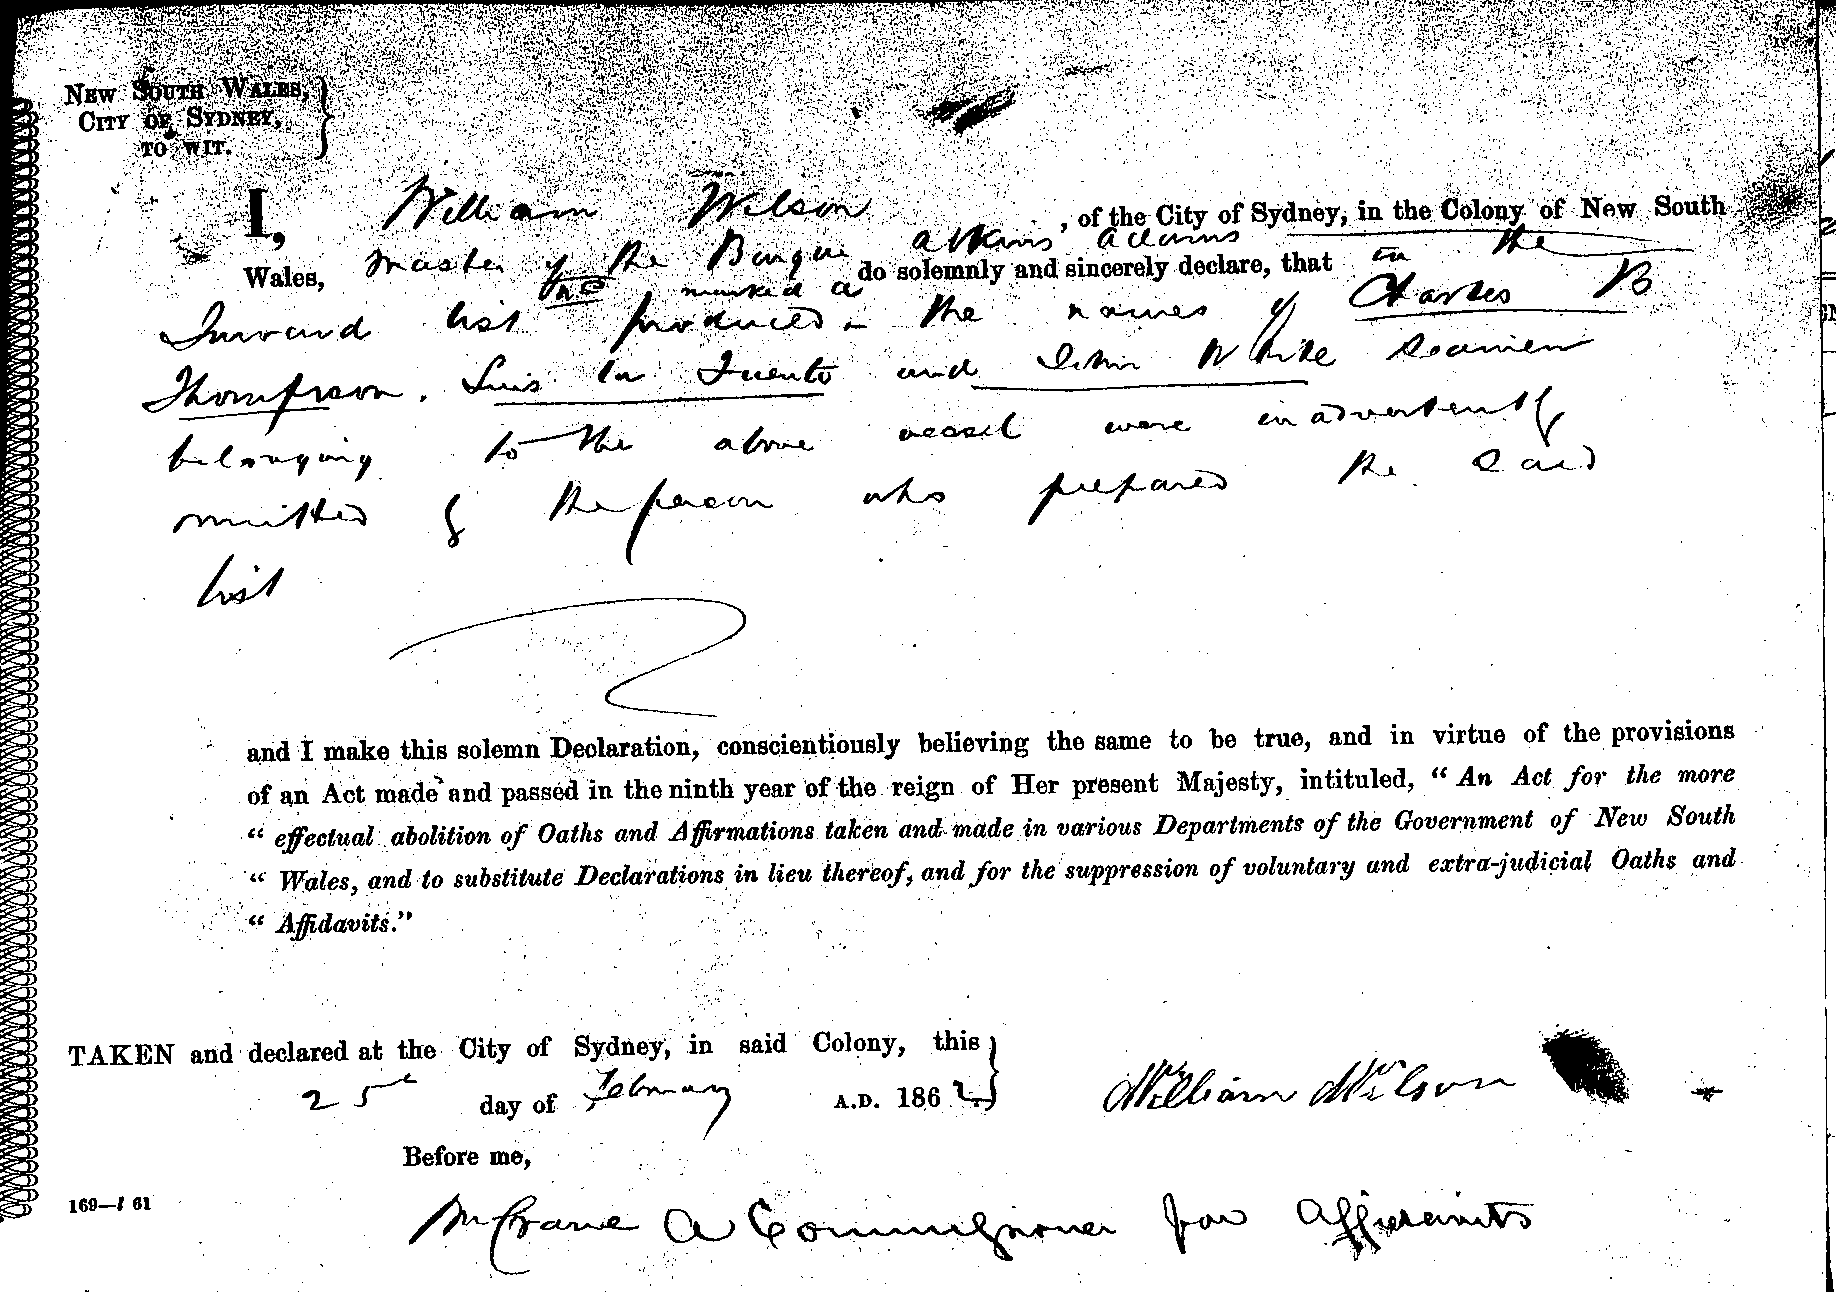 NEW SOUTH WALES,
CITY OF SYDNEY,
TO WIT.
I, William Wilson, of the City of Sydney, in the Colony of New South
Wales, master of the Barque Atkins Adams do solemnly and sincerely declare, that in the
marked a
Inward list produced the names of Charles B
Thompson. Luis La Fuento and John White seamen
belonging to the above vessel were inadvertently
omitted by the person who prepared the said
list
and I make this solemn Declaration, conscientiously believing the same to be true, and in virtue of the provisions
of an Act made and passed in the ninth year of the reign of Her present Majesty, intituled, “ An Act for the more
“ effectual abolition of Oaths and Affirmations taken and made in various Departments of the Government of New South
“ Wales, and to substitute Declarations in lieu thereof, and for the suppression of voluntary and extra-judicial Oaths and
“ Affidavits.”
TAKEN and declared at the City of Sydney, in said Colony, this
25th day of February A.D. 1862.
William Wilson
Before me,
169—61
McCrane A Commissioner for Affidavits